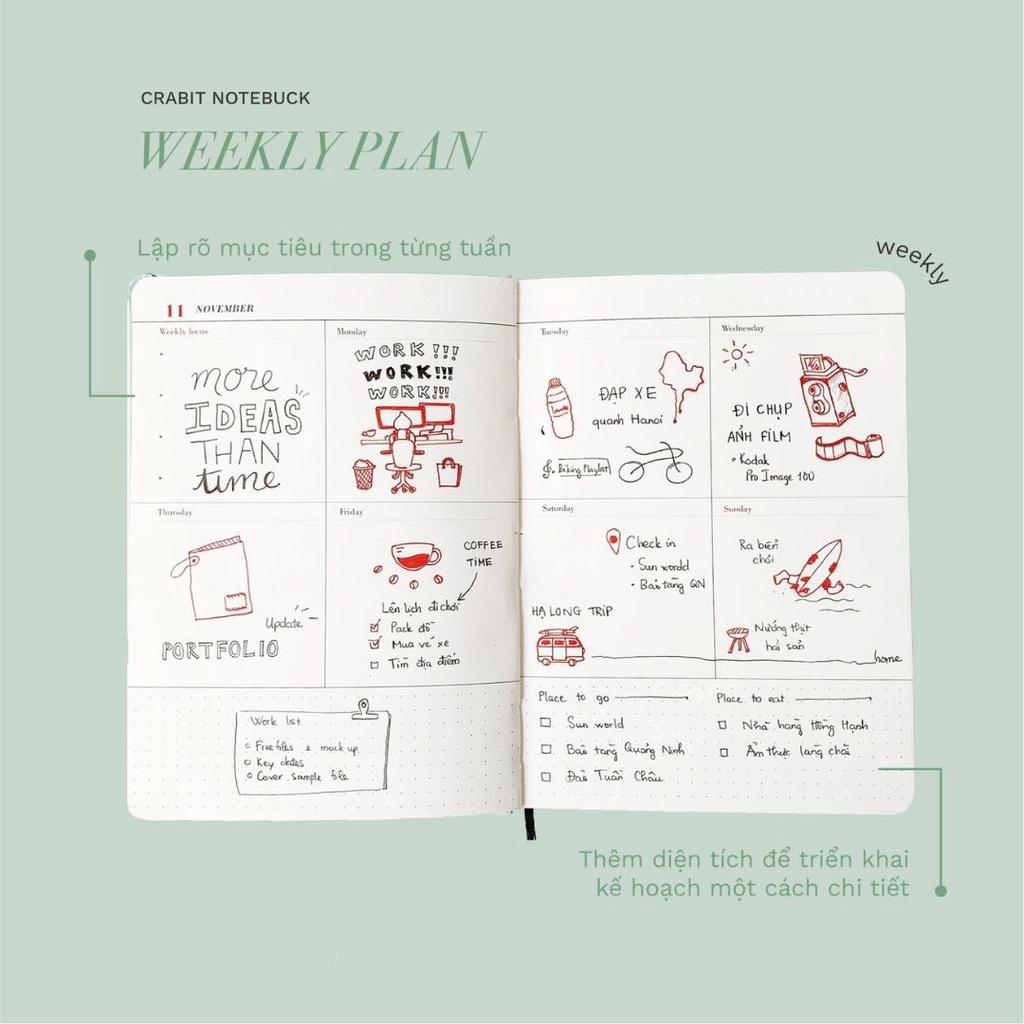 CRABIT NOTEBUCK
WEEKLY PLAN
Lập rõ mục tiêu trong từng tuần
weekly
11 NOVEMBER
Weekly focus
more
IDEAS
THAN
time
Monday
WORK!!!
WORK!!!
WORK!!!
Tuesday
ĐẠP XE
quanh Hanoi
Biking Playlist
Wednesday
ĐI CHỤP
ẢNH FILM
Kodak
Pro Image 100
Thursday
Update
PORTFOLIO
Friday
COFFEE
TIME
Lên lịch đi chơi
Pack đồ
Mua vé xe
Tìm địa điểm
Saturday
Check in
- Sun world
- Bảo tàng QN
HẠ LONG TRIP
Sunday
Ra biển
chơi
Nướng thịt
hải sản
home
Work list
Free files & mock up
Key dates
Cover sample file
Place to go
Sun world
Bảo tàng Quảng Ninh
Đảo Tuần Châu
Place to eat
Nhà hàng Hồng Hạnh
Ẩm thực làng chài
Thêm diện tích để triển khai
kế hoạch một cách chi tiết